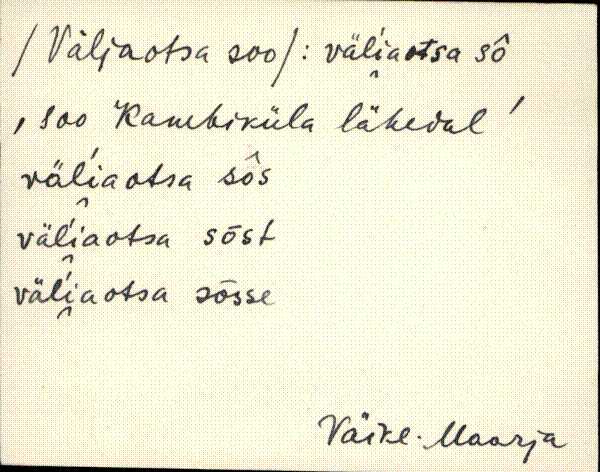 /Väljaotsa soo/: väl'i̭aotsa sô
‚ soo Kambiküla lähedal ’
väl'i̭aotsa sôs
väl'i̭aotsa sōst
väl'i̭aotsa sōsse
Väike-Maarja